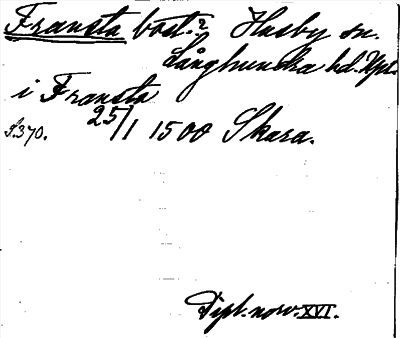 Fransta bost.? Husby sn.
Långhundra hd. Upl.
i Fransta
25/1 1500 Skara.
S.370.
Dipl. norv. XVI.